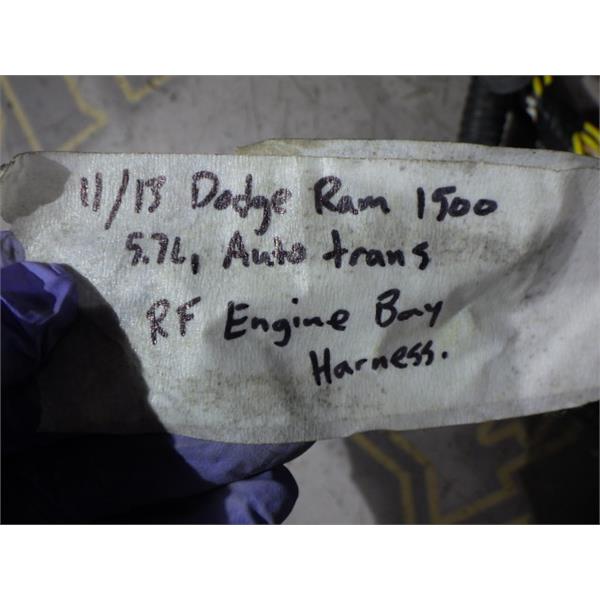 11/13 Dodge Ram 1500
5.7L, Auto trans
RF Engine Bay
Harness.